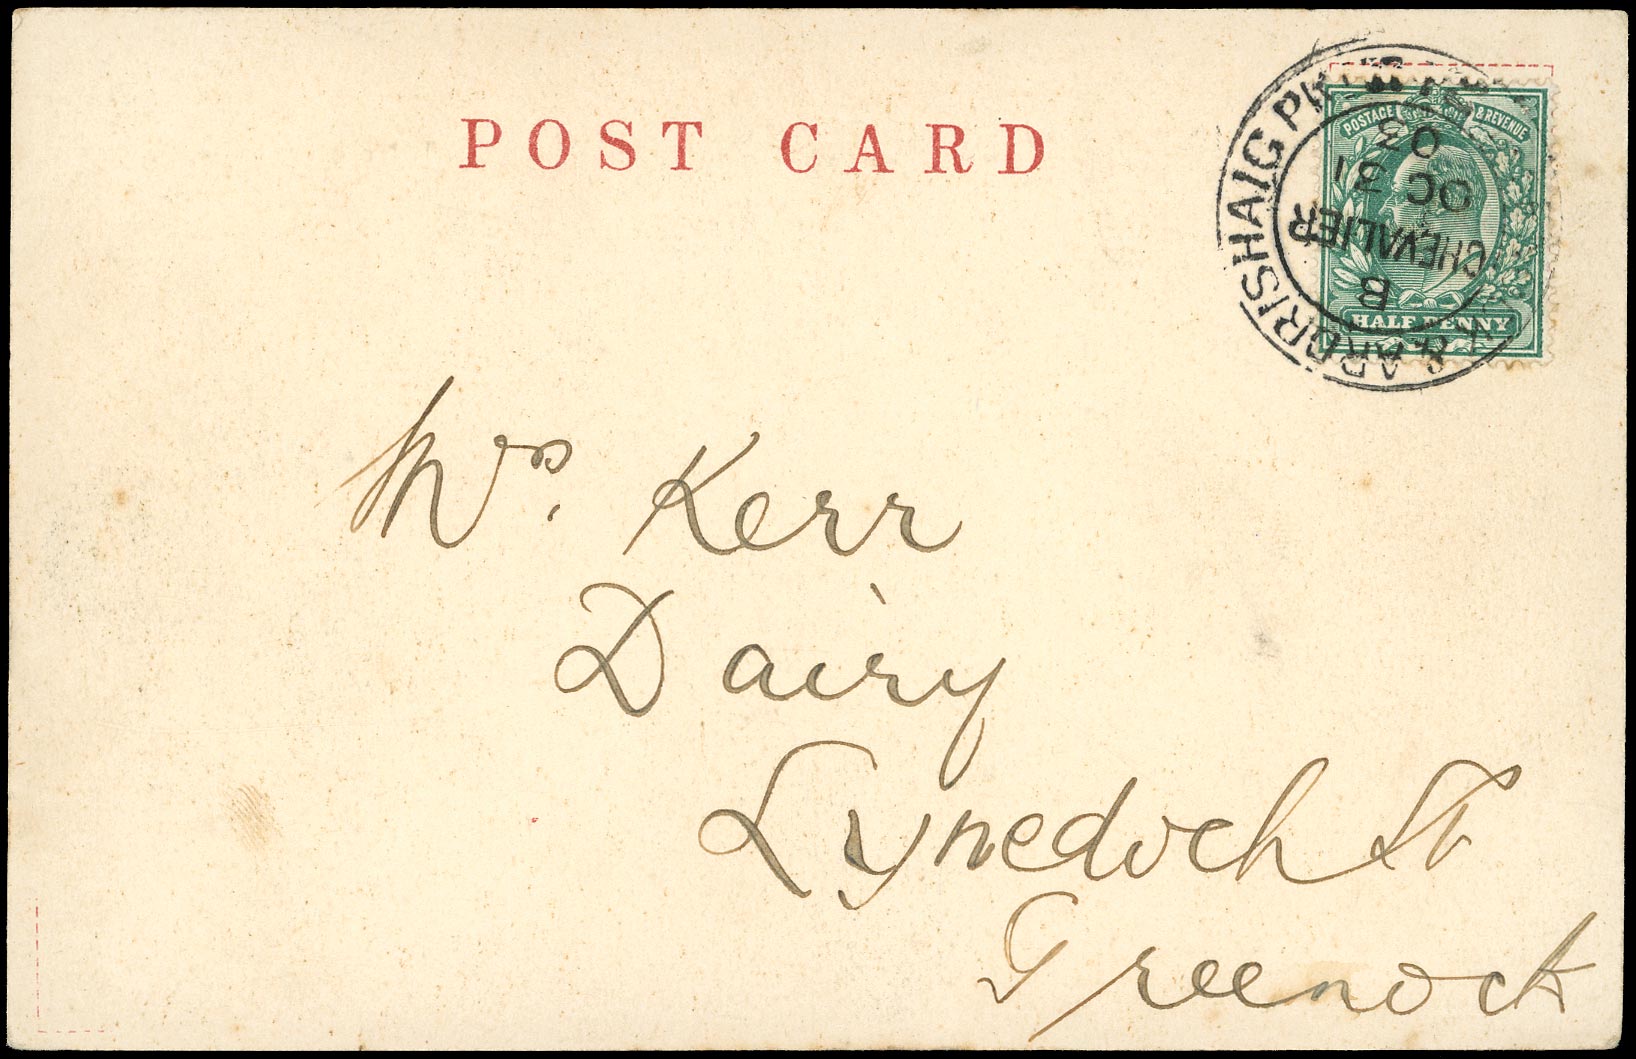 POST CARD
POSTAGE & REVENUE
HALF PENNY
& ARDRISHAIG
B
CHEVALIER
OC 31
03
Mrs. Kerr
Dairy
Lynedoch St
Greenock